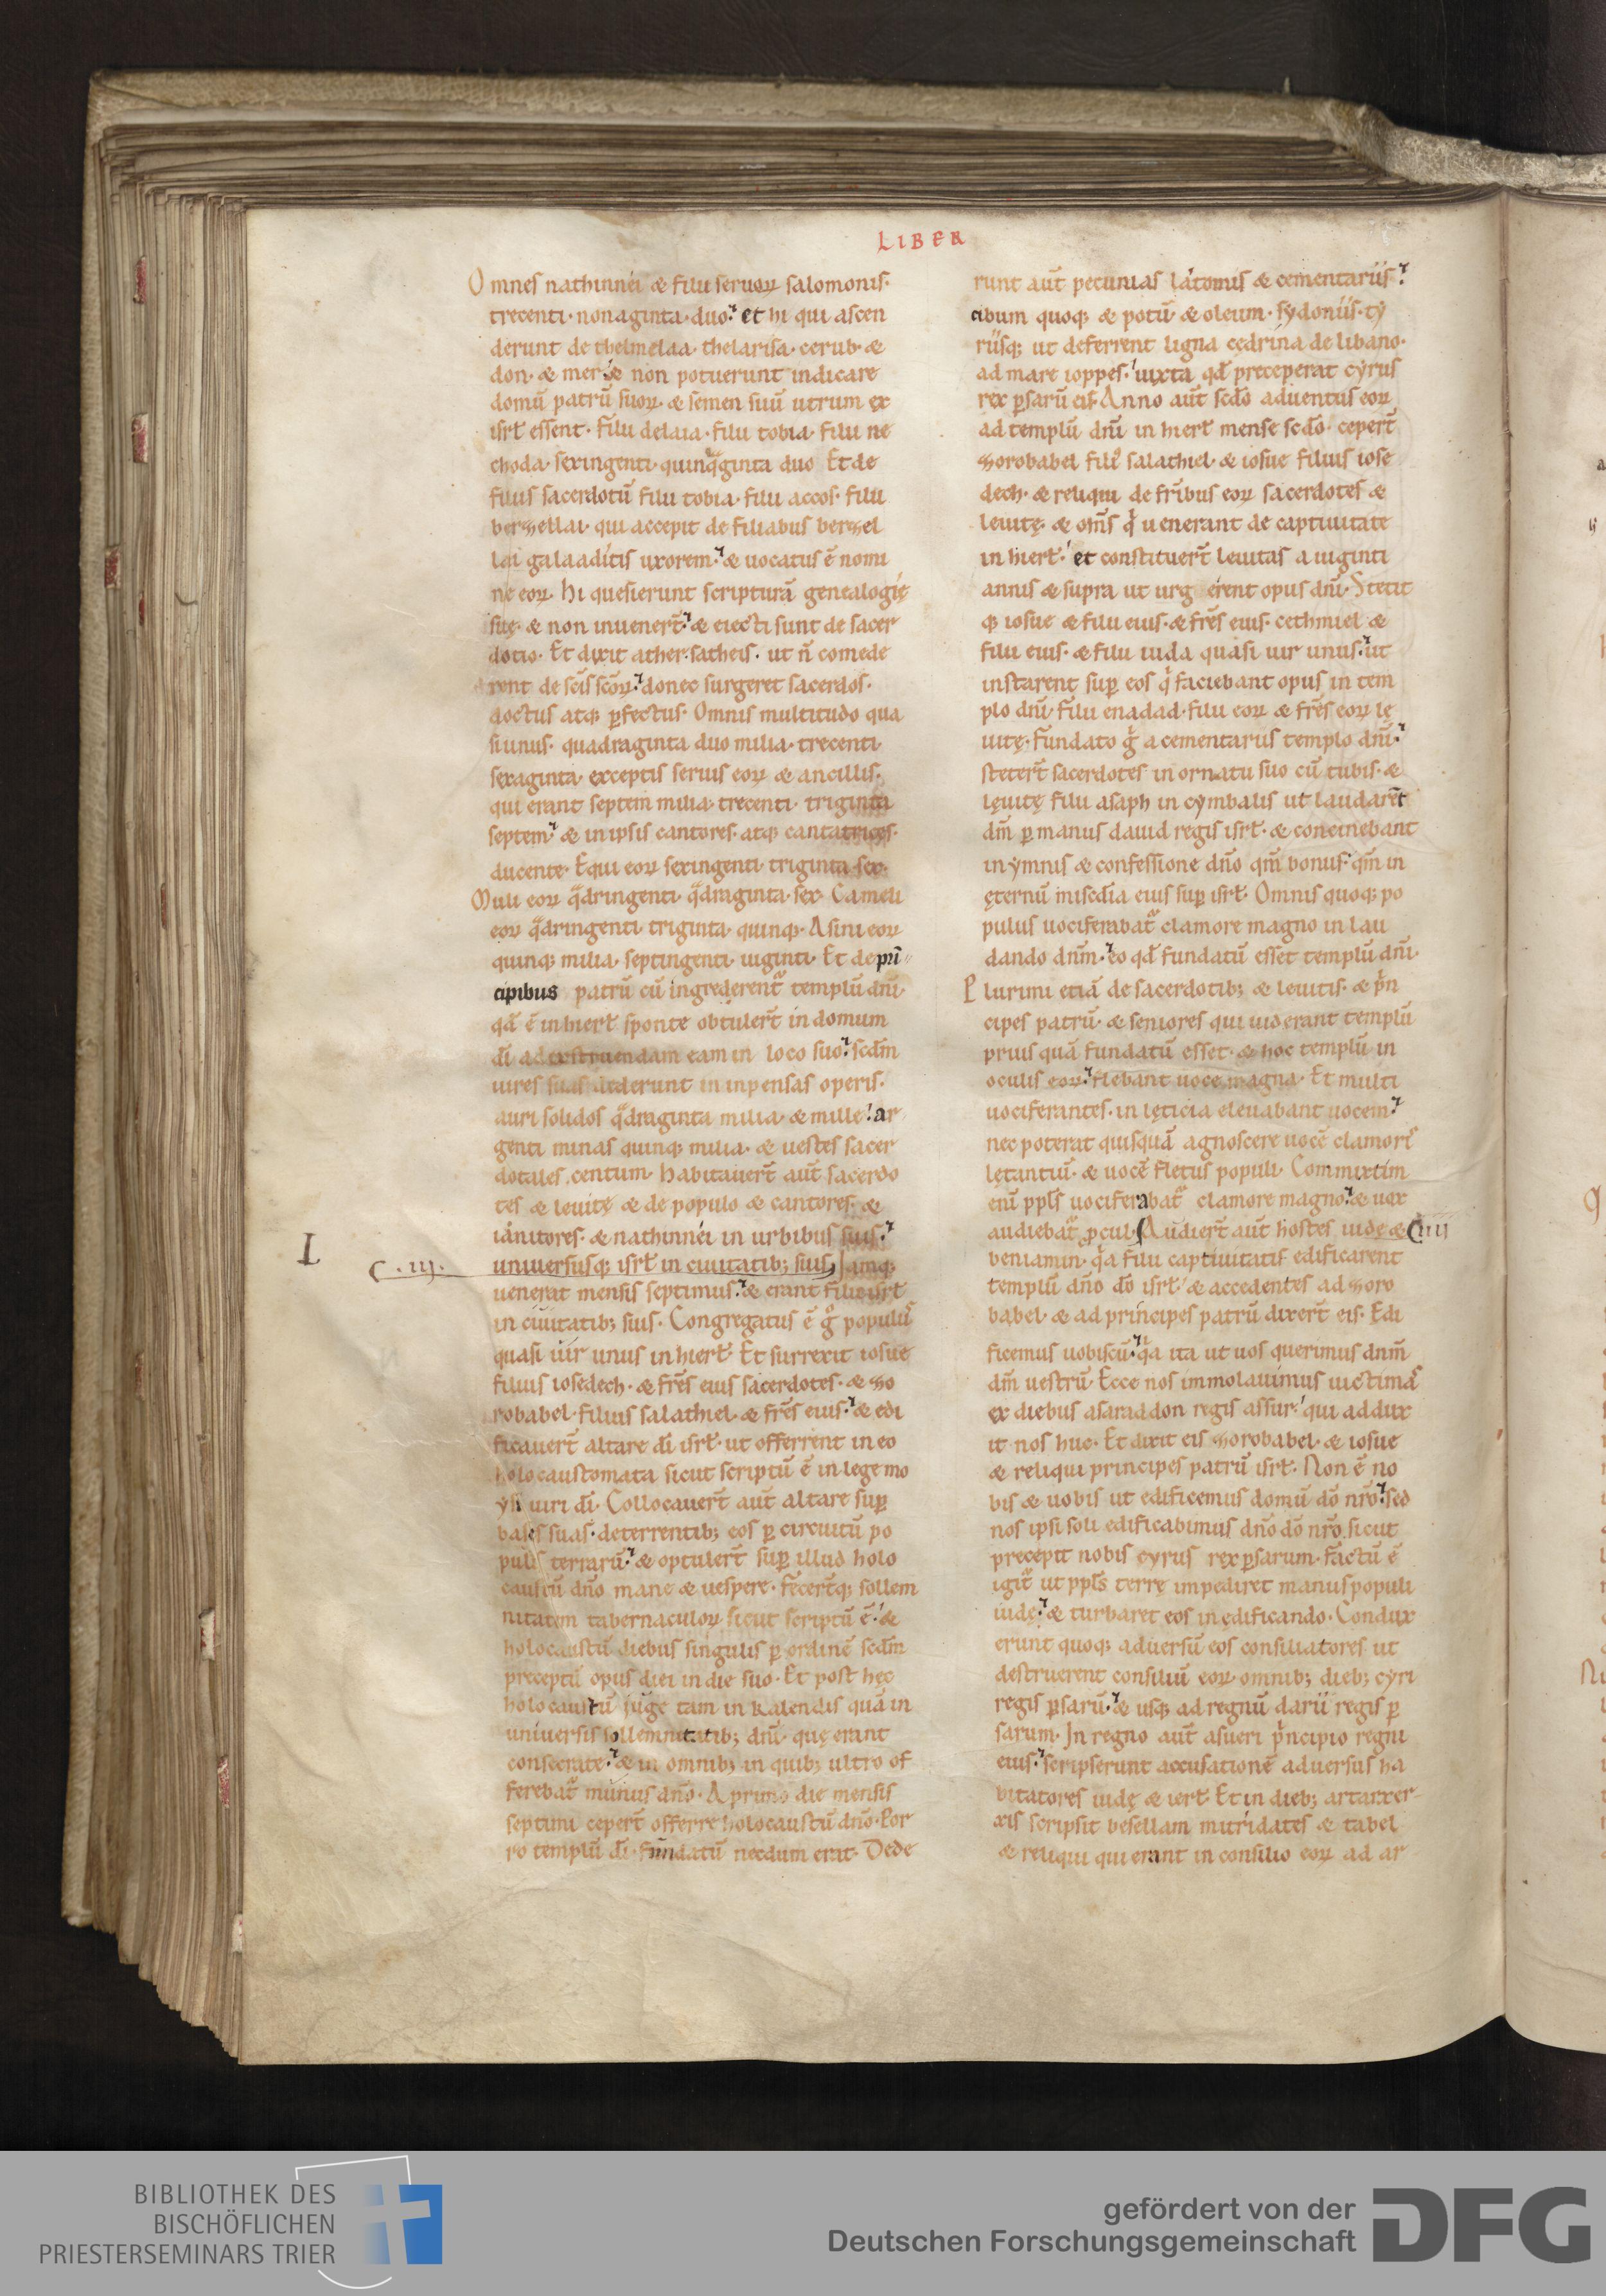 LIBER
Omnes nathinnei & filii seruoꝝ salomonis·
trecenti· nonaginta· duo· et hi qui ascen
derunt de thelmelaa· thelarisa· cerub· &
don· & mer· & non potuerunt indicare
domū patrū suoꝝ· & semen suū utrum ex
isrł essent· Filii delaia· filii tobia· filii ne
choda· sexingenti· quinqͣginta duo Et de
filiis sacerdotū filii tobia· filii accos· filii
berzellai· qui accepit de filiabus berzel
lai galaaditis uxorem· & uocatus ē nomi
ne eoꝝ· Hi quesierunt scripturā genealogię
suę· & non inuener̄t· & eiecti sunt de sacer
dotio· Et dixit ather·satheis· ut ñ comede
rent de scīs scōꝝ· donec surgeret sacerdos·
doctus atq; ꝑfectus· Omnis multitudo qua
si unus· quadraginta duo milia· trecenti·
sexaginta· exceptis seruis eoꝝ & ancillis·
qui erant septem milia· trecenti· triginta
septem· & in ipsis cantores· atq; cantatrices·
ducente· Equi eoꝝ sexingenti· triginta sex·
Muli eoꝝ qͣdringenti· qͣdraginta· sex· Cameli
eoꝝ qͣdringenti· triginta· quinq;· Asini eoꝝ
quinq; milia· septingenti· uiginti· Et de prī
cipibus patrū cū ingrederent̄ templū dn̄i·
qd̄ ē in hierł sponte obtuler̄t in domum
dī ad exstruendam eam in loco suo· scd̄m
uires suas dederunt in inpensas operis·
auri solidos qͣdraginta milia· & mille· ar
genti minas quinq; milia· & uestes sacer
dotales centum· Habitauer̄t aut̄ sacerdo
tes & leuitę & de populo & cantores· &
ianitores· & nathinnei in urbibus suis·
L
C.iij.
uniuersusq; isrł in ciuitatib; suis Iamq;
uenerat mensis septimus· & erant filii isrł
in ciuitatib; suis· Congregatus ē gͦ populus
quasi uir unus in hierł· Et surrexit iosue
filius iosedech· & frēs eius sacerdotes· & zo
robabel· filius salathiel· & frēs eius· & edi
ficauer̄t altare dī isrł· ut offerrent in eo
holocaustomata sicut scriptū ē in lege mo
ysi uiri dī· Collocauer̄t aut̄ altare suꝑ
bases suas· deterrentib; eos ꝑ circuitū po
pulis terrarū· & optuler̄t suꝑ illud holo
caustū dn̄o mane & uespere· Fecer̄tq; sollem
nitatem tabernaculoꝝ sicut scriptū ē· &
holocaustū diebus singulis ꝑ ordinē scd̄m
preceptū opus diei in die suo· Et post hęc
holocaustū iuge tam in kalendis quā in
uniuersis sollemnitatib; dn̄i· quę erant
consecrate· & in omnib; in quib; ultro of
ferebat̄ munus dn̄o· A primo die mensis
septimi ceper̄t offerre holocaustū dn̄o· Por
ro templū dī fundatū necdum erat· Dede
runt aut̄ pecunias latomis & cementariis·
cibum quoq; & potū & oleum· sydoniis· ty
riisq; ut deferrent ligna cędrina de libano·
ad mare ioppes· iuxta qd̄ preceperat cyrus
rex ꝑsarū eis· Anno aut̄ scd̄o aduentus eoꝝ
ad templū dn̄i in hierł mense scd̄o· ceper̄t
zorobabel filiꝰ salathiel· & iosue filius iose
dech· & reliqui de frībus eoꝝ sacerdotes &
leuitę· & om̄s qͥ uenerant de captiuitate
in hierł· et constituer̄t leuitas a uiginti
annis & supra ut urg erent opus dn̄i· Stetit
q; iosue & filii eius· & frēs eius· cethmiel &
filii eius· & filii iuda quasi uir unus· ut
instarent suꝑ eos qͥ faciebant opus in tem
plo dn̄i· filii enadad· filii eoꝝ & frēs eoꝝ lę
uitę· Fundato gͦ a cementariis templo dn̄i·
steter̄t sacerdotes in ornatu suo cū tubis· &
lęuitę filii asaph in cymbalis ut laudarēt
dm̄ ꝑ manus dauid regis isrł· & concinebant
in ymnis & confessione dn̄o qm̄ bonus· qm̄ in
ęternū misc̄dia eius suꝑ isrł· Omnis quoq; po
pulus uociferabat̄ clamore magno in lau
dando dnm̄· eo qd̄ fundatū esset templū dn̄i·
Plurimi etiā de sacerdotib; & leuitis· & pͥn
cipes patrū· & seniores qui uiderant templū
prius quā fundatū esset· & hoc templū in
oculis eoꝝ· flebant uoce magna· Et multi
uociferantes· in lęticia eleuabant uocem·
nec poterat quisquā agnoscere uocē clamoris
lętantiū· & uocē fletus populi· Commixtim
enī ppłs uociferabat̄ clamore magno· & uox
audiebat̄ procul· Audier̄t aut̄ hostes iudę & C iiij
beniamin· qͣa filii captiuitatis edificarent
templū dn̄o dō isrł· & accedentes ad zoro
babel· & ad principes patrū dixer̄t eis· Edi
ficemus uobiscū· qͣa ita ut uos querimus dnm̄
dm̄ uestrū· Ecce nos immolauimus uictimas
ex diebus asaraddon regis assur· qui addux
it nos huc· Et dixit eis zorobabel· & iosue
& reliqui principes patrū isrł· Non ē no
bis & uobis ut edificemus domū dō nr̄o· sed
nos ipsi soli edificabimus dn̄o dō nr̄o sicut
precepit nobis cyrus rex ꝑsarum· Factū ē
igit̄ ut ppłs terrę impediret manus populi
iudę· & turbaret eos in ędificando· Condux
erunt quoq; aduersū eos consiliatores ut
destruerent consiliū eoꝝ omnib; dieb; cyri
regis ꝑsarū· & usq; ad regnū darii regis ꝑ
sarum· In regno aut̄ asueri pͥncipio regni
eius· scripserunt accusationē aduersus ha
bitatores iudę & ierł· Et in dieb; artarxer
xis scripsit besellam mitridates & tabel
& reliqui qui erant in consilio eoꝝ ad ar
BIBLIOTHEK DES
BISCHÖFLICHEN
PRIESTERSEMINARS TRIER
gefördert von der
Deutschen Forschungsgemeinschaft
DFG